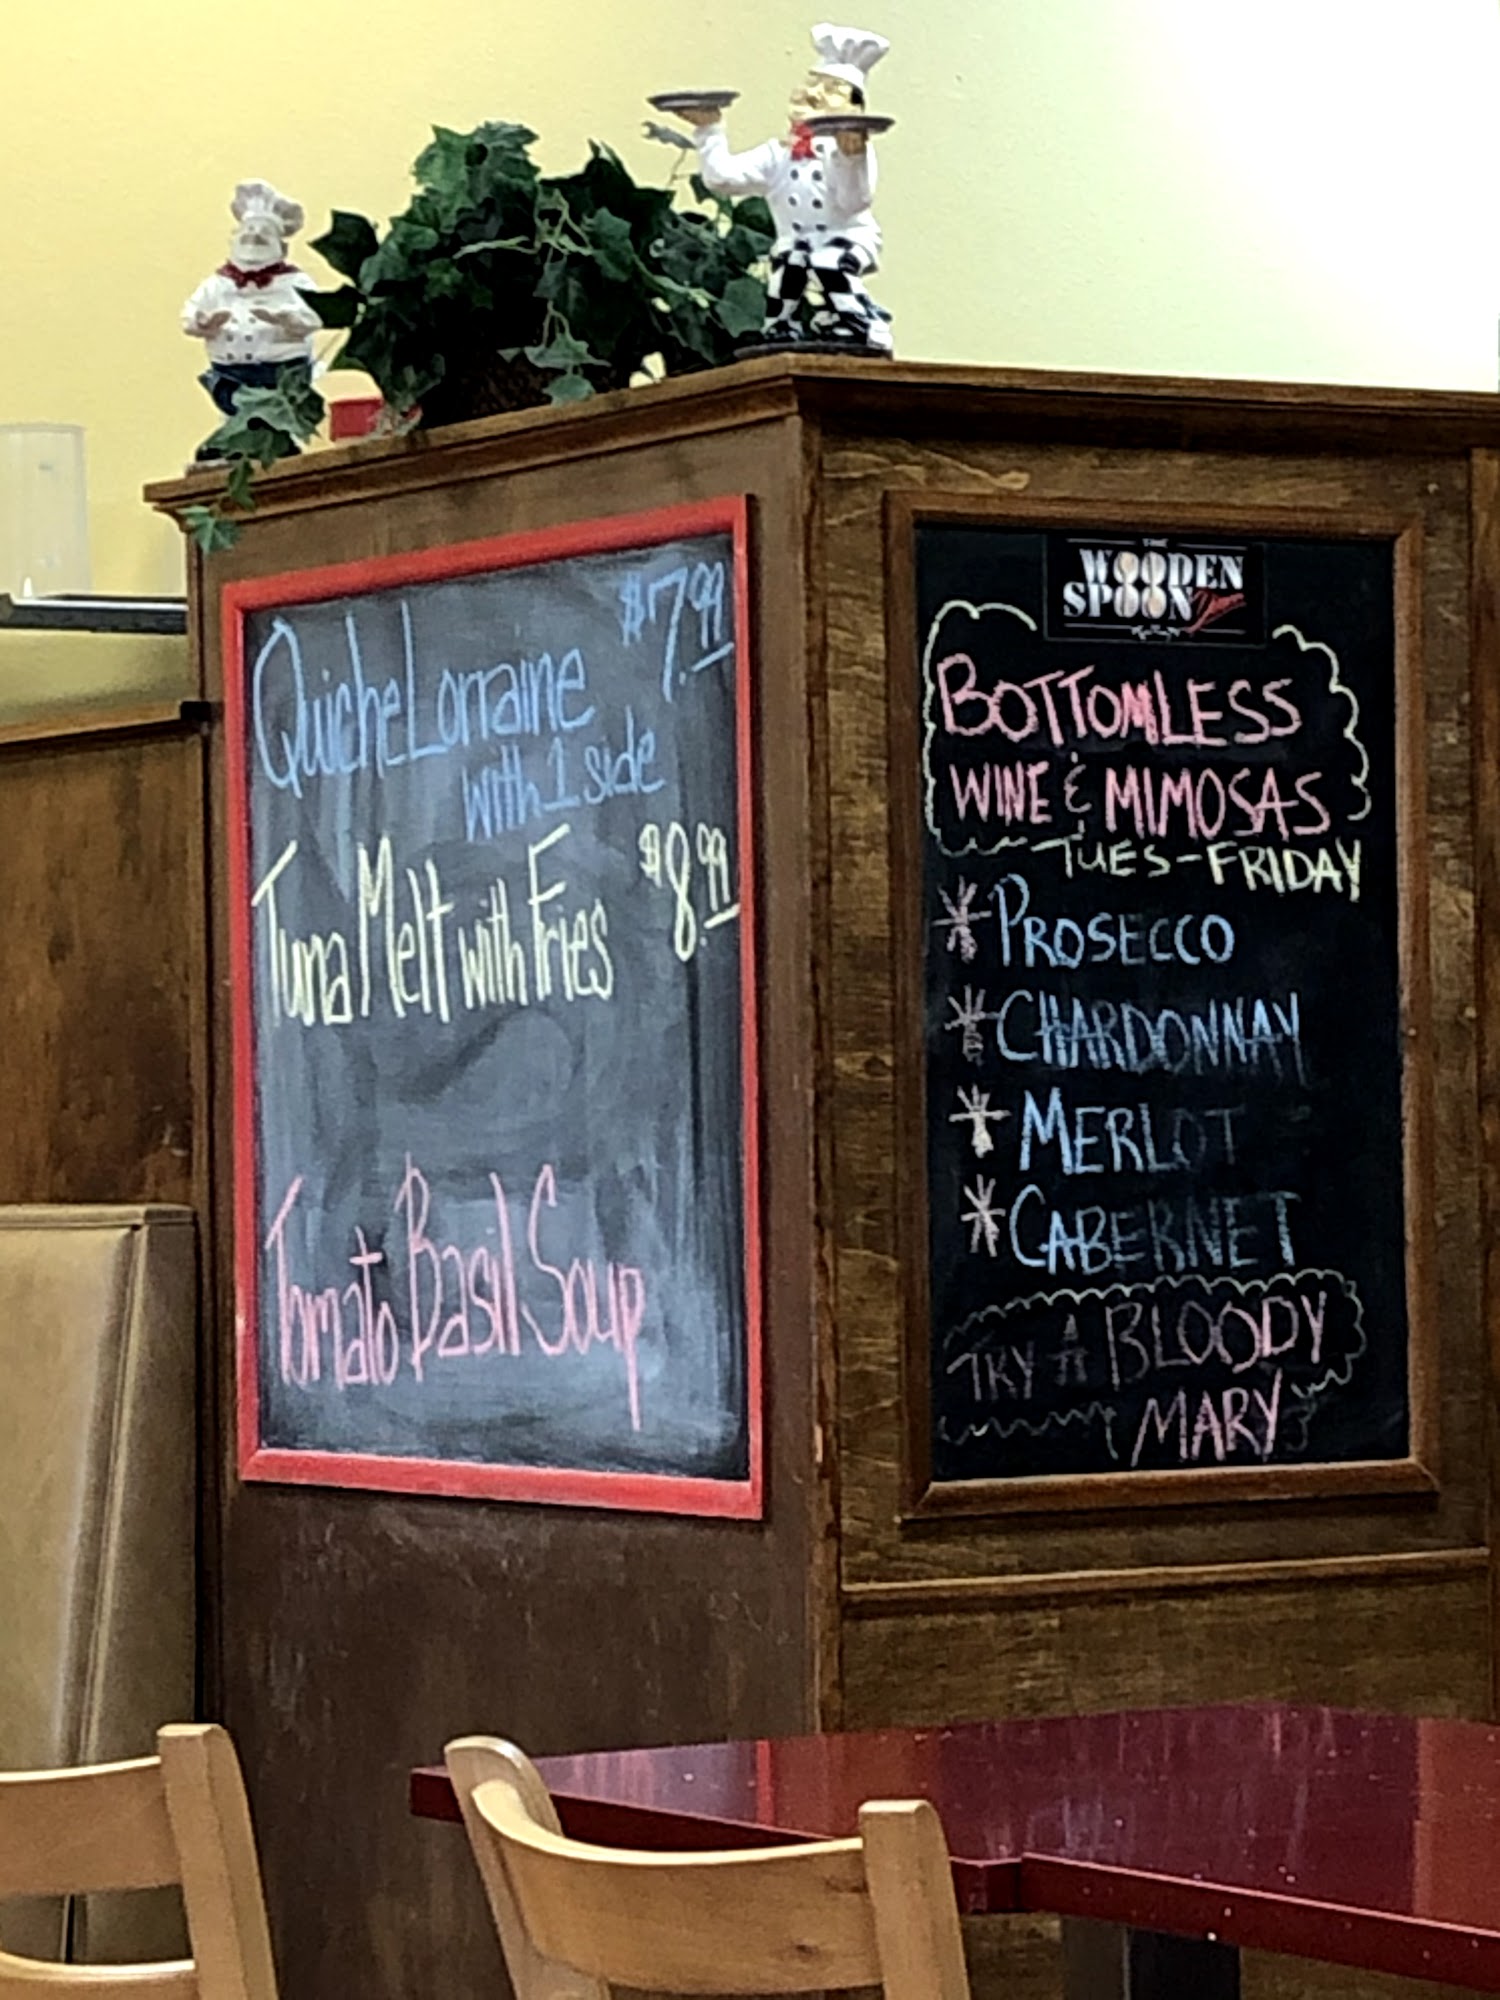 Quiche Lorraine $7.99
with 1 side
Tuna Melt with Fries $8.99
Tomato Basil Soup
THE
WOODEN
SPOON Diner
BOTTOMLESS
WINE & MIMOSAS
TUES-FRIDAY
* PROSECCO
* CHARDONNAY
* MERLOT
* CABERNET
TRY A BLOODY
MARY